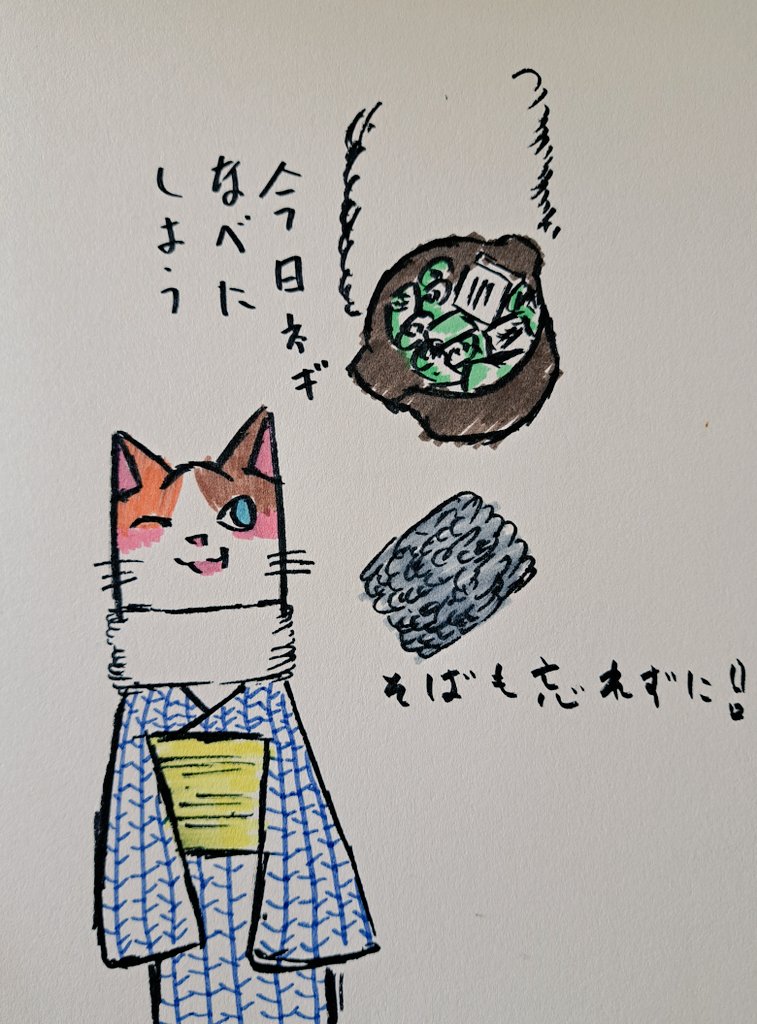 今日ネギ
なべに
しよう
そばも忘れずに!!